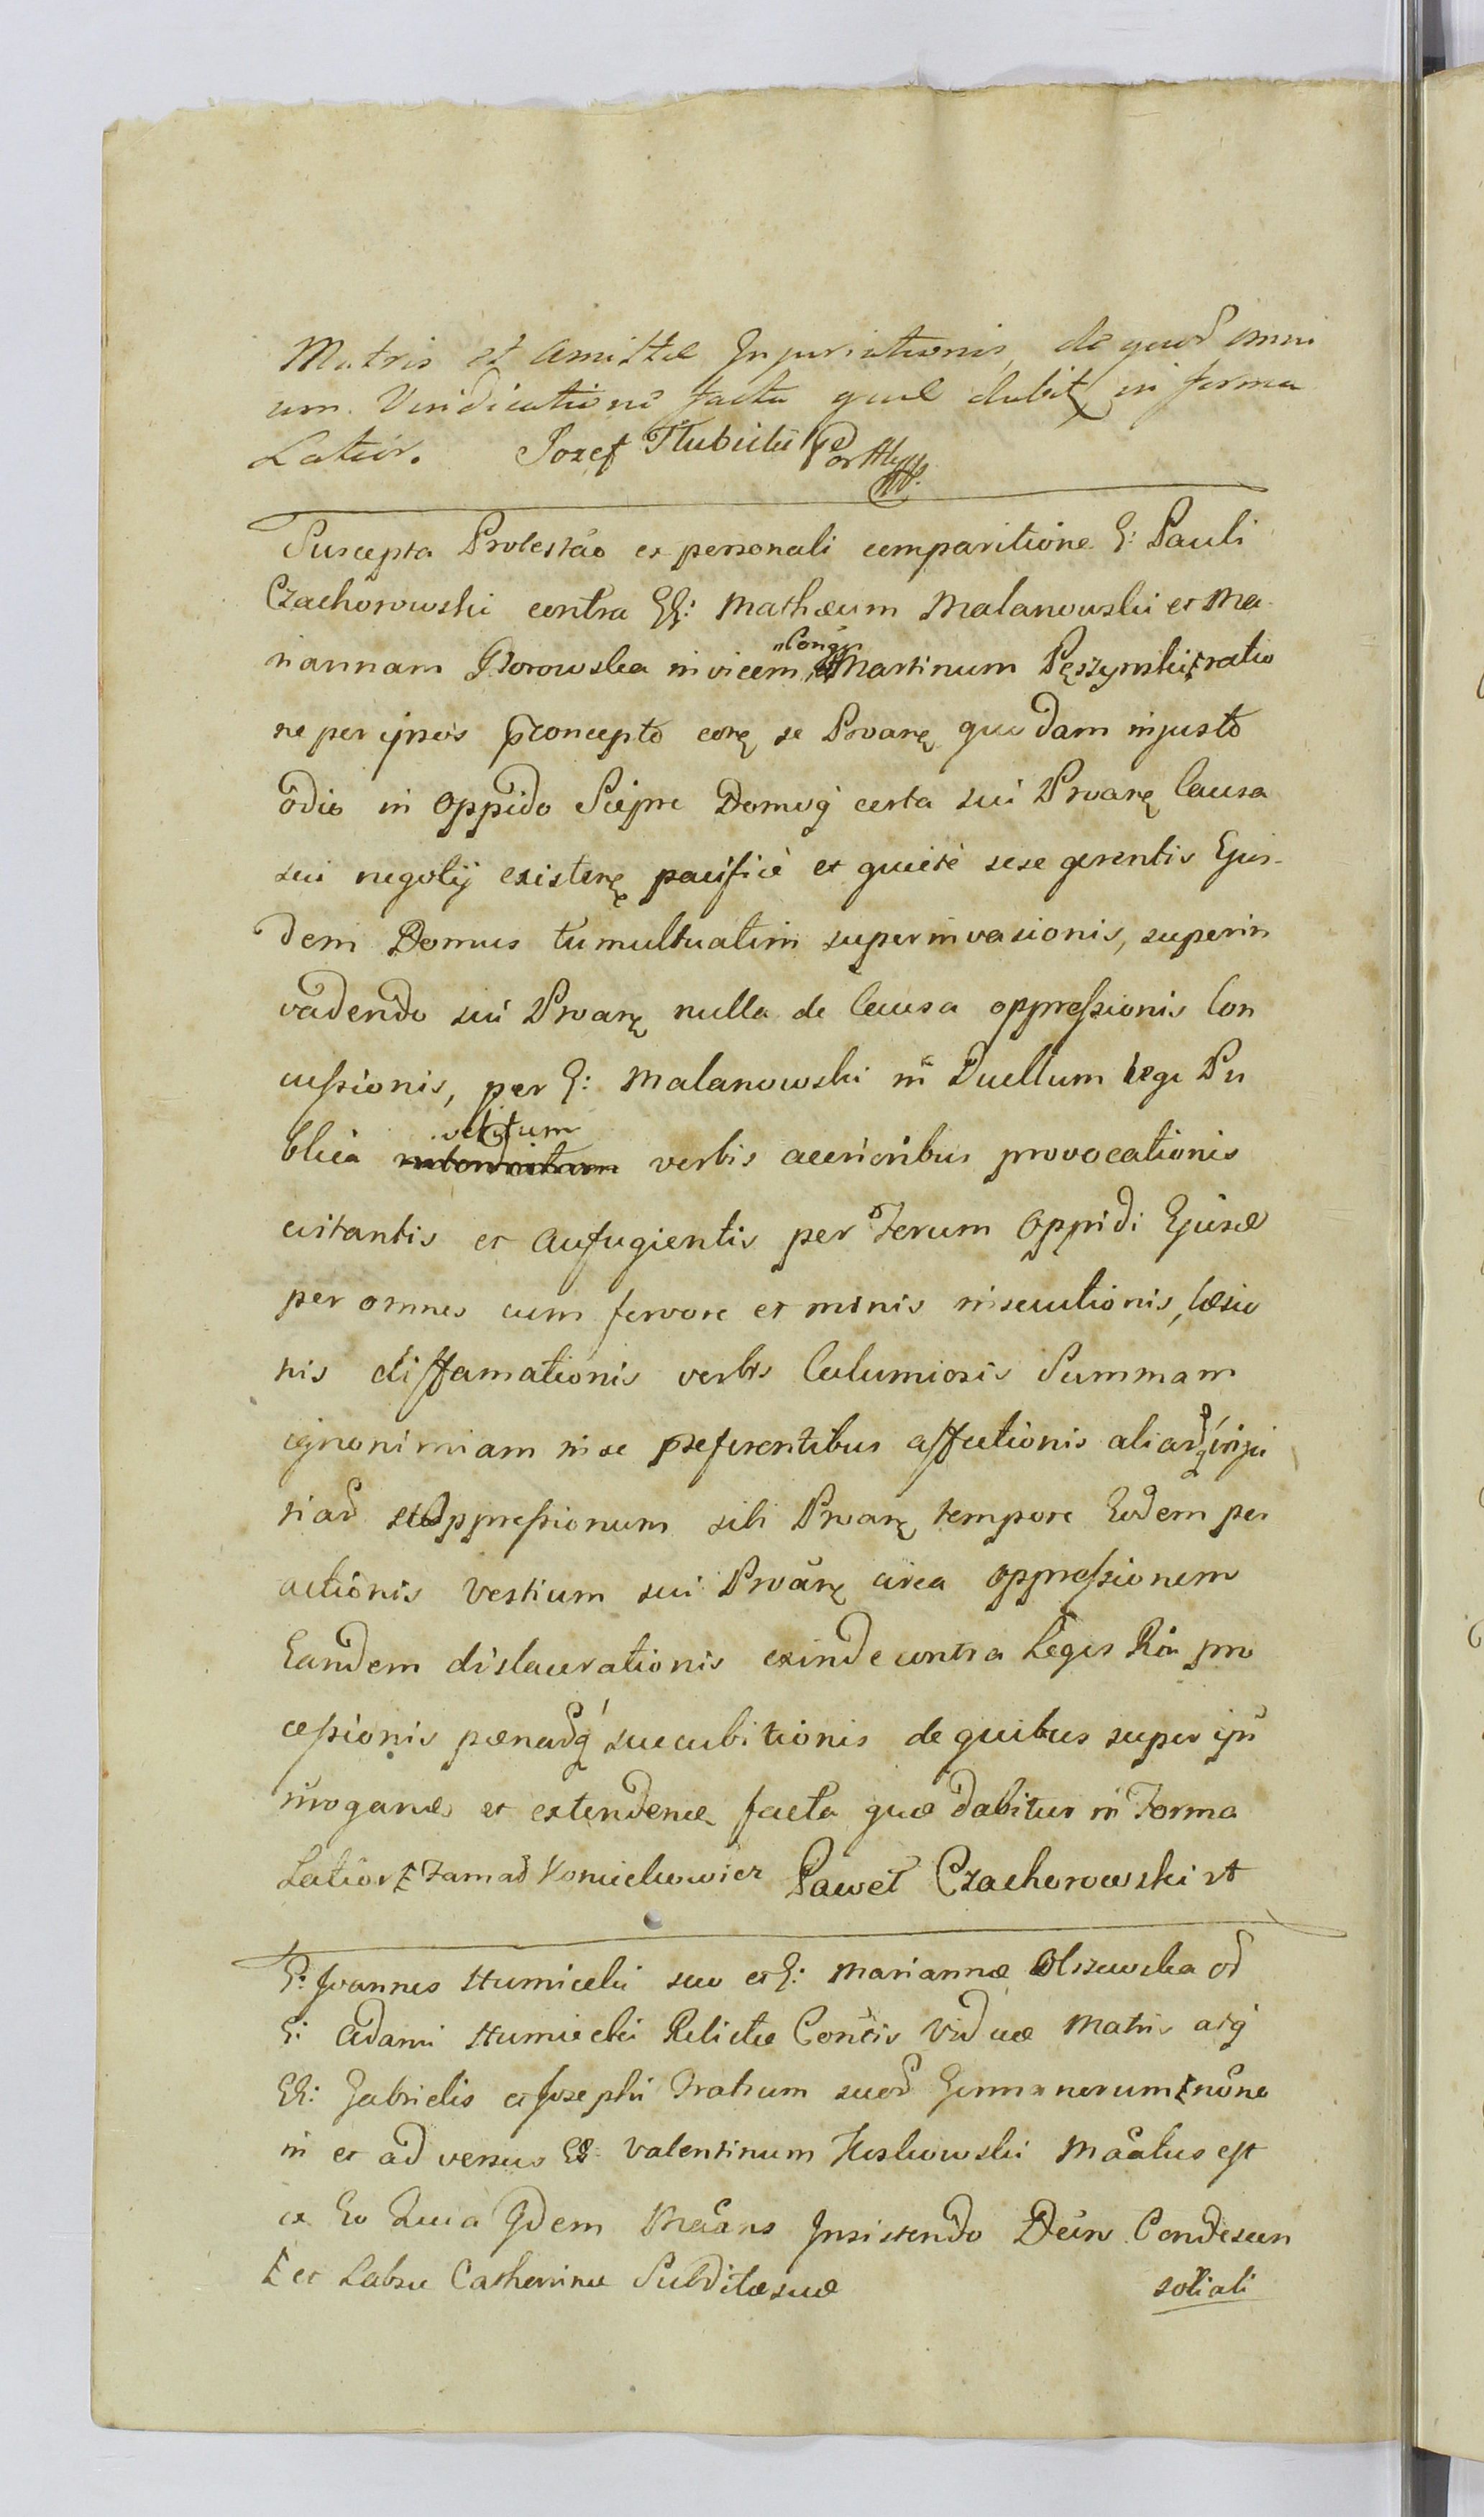 Matris et Amittæ Injuriationis, de quor omni
um Vindicatione facta quæ dabit in forma
Latiori. Jozef Tłubicki
Suscepta Protestão ex personali comparitione G: Pauli
Czachorowski contra GG: Mathæum Malanowski et Ma
riannam Głorowska invicem Conges Martinum Pęszynski ratio
ne per ipsos præconcepto corę se Proanę quodam injusto
odio in oppido Siepre Domoq certa sui Proanę Causa
sui negotij existenę pacificè et quietè sese gerentis Ejus
dem Domus tumultuatim superinvasionis, superin
vadendo sui Proanę nulla de Causa oppressionis Con
cussionis, per G: Malanowski in Duellum lege Pu
blica vetitum verbis acerioribus provocationis
evitantis et aufugientis per Forum Oppidi Ejusd
per omnes cum fervore et minis insecutionis, læsio
nis diffamationis verbis Calumiosis Summam
ignonimiam in se præferentibus affectionis aliarq inju
riar et oppressionum sibi Proanę tempore Eodem per
actionis Vestium sui Proanę circa oppressionem
Eandem dislacerationis exinde contra Leges Rñi pro
cessionis pænarq succubitionis de quibus super ijs
irroganæ et extendenæ facta quæ dabitur in Forma
Latiori Paweł Czachorowski
G: Joannes Humiecki suo et G: Mariannæ Olszewska od
G: Adami Humiecki Relictæ Consis Viduæ Matris atq
GG: Gabrielis et Josephi Fratrum suor Germanorum noñe
in et adversus G: Valentinum Koskowski Mãatus est
ex Eo Quia Idem Mãans Insistendo Deciso Condescen
et Labsu Catherinæ Subditæ suæ soriali